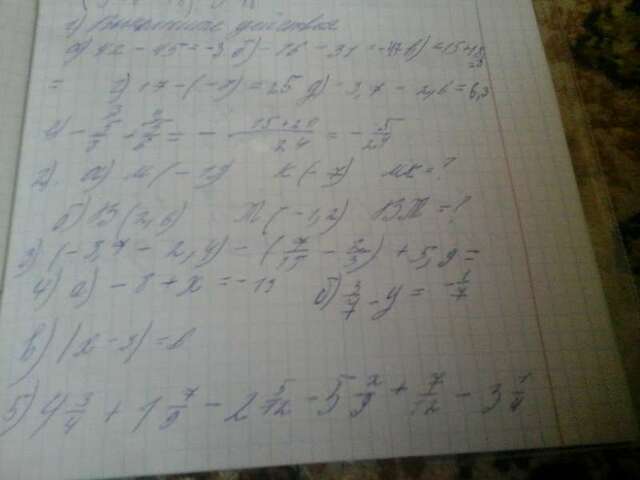 1) Выполните действия
а) 42 - 45 = -3 б) -16 - 31 = -47 в) = 15 + 18
= г) 17 - (-8) = 25 д) -3,7 - 2,6 = 6,3
= - 15 + 20 / 24 = - 5/24
2). а) М (- 13) К (- 7) МК = ?
б) В (2,6) Т (- 1,2) ВТ = ?
3) (-3,7 - 2,4) - (7/15 - 2/3) + 5,9 =
4) а) - 8 + х = -13 б) 3/7 - у = -1/7
в) |х - 3| = 6
5) 4 3/4 + 1 7/9 - 2 5/12 - 5 2/9 + 7/12 - 3 1/4